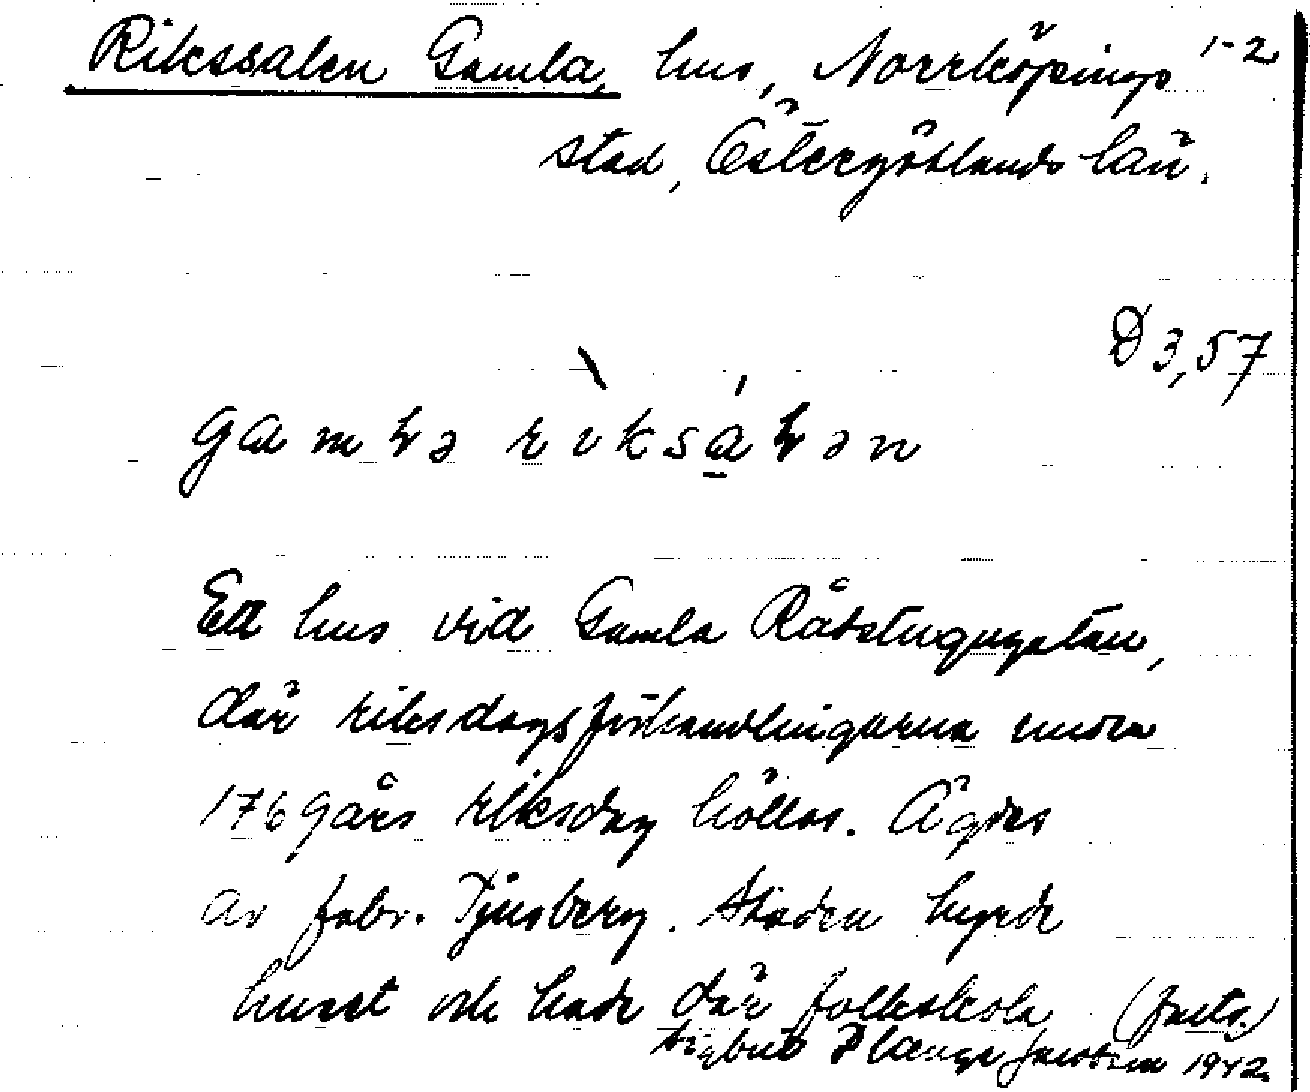 Rikssalen Gamla, hus, Norrköpings 1-2
stad, Östergötlands län.
D 3,57
Ett hus vid Gamla Rådstugugatan,
där riksdagsförhandlingarna under
1769 års riksdag höllos. Ägdes
av fabr. Ljusberg. Staden hyrde
huset och hade där folkskola (forts.)
1942